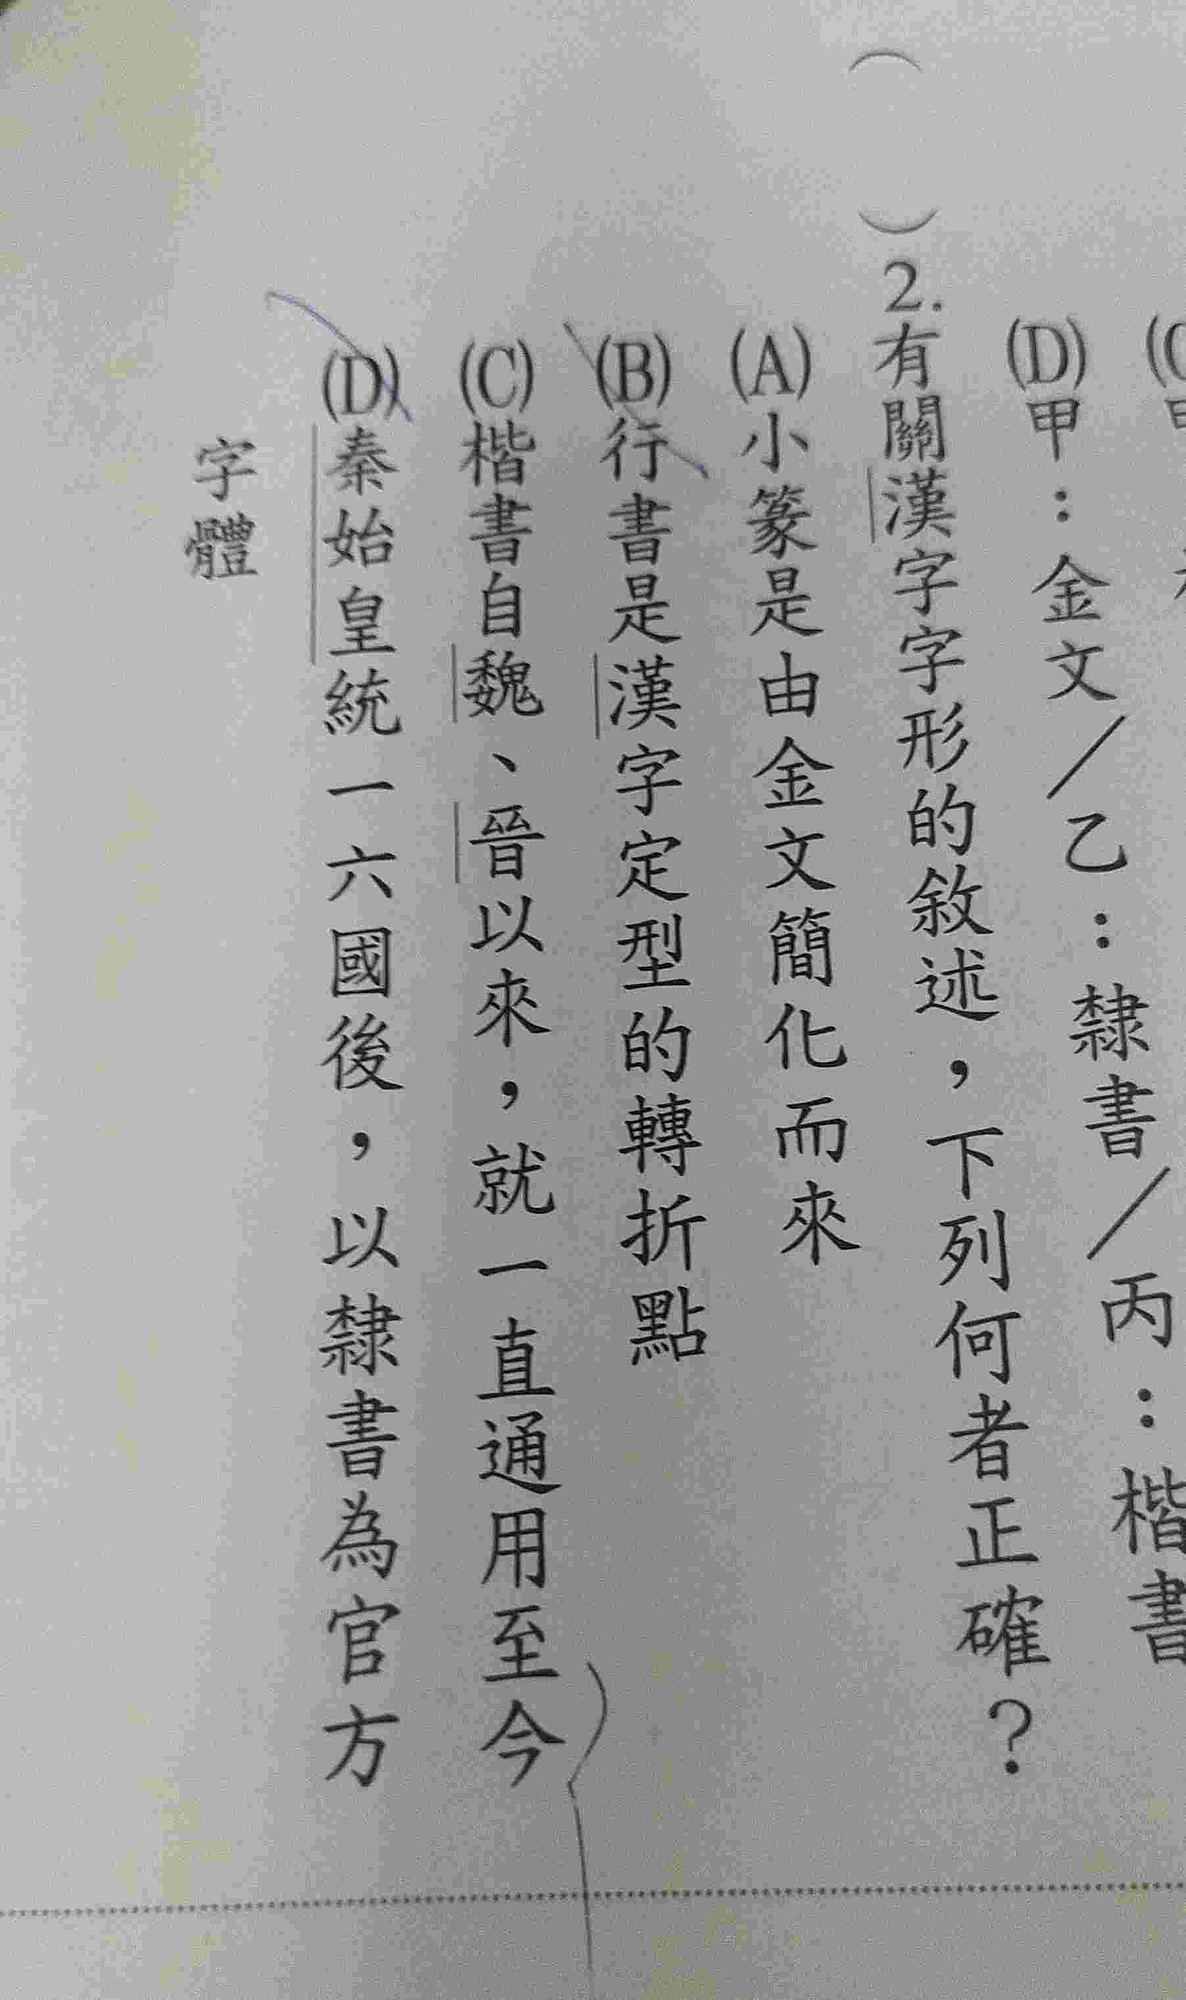 (D)甲：金文／乙：隸書／丙：楷書
（　）2.有關漢字字形的敘述，下列何者正確？
(A)小篆是由金文簡化而來
(B)行書是漢字定型的轉折點
(C)楷書自魏、晉以來，就一直通用至今
(D)秦始皇統一六國後，以隸書為官方
字體